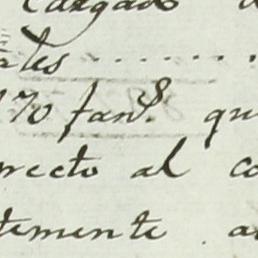 Cargado
ales . . . . . . .
170 fan.s qu
recto al co
temente a